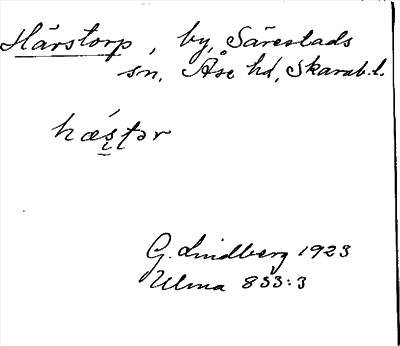 Härstorp, by, Särestads
sn, Åse hd, Skarab. l.
hǽştər
G. Lindberg 1923
Ulma 833:3